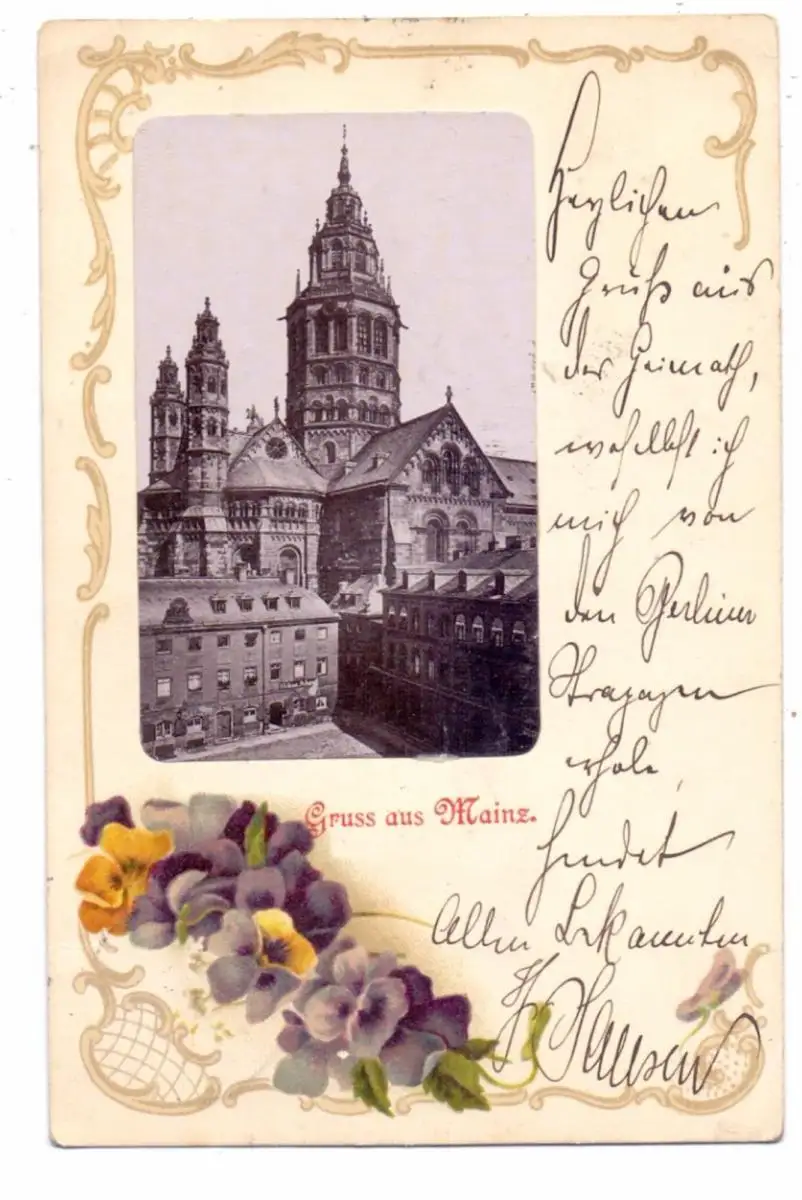 Gruss aus Mainz.
Herzlichen
Gruß aus
der Heimath,
woselbst ich
mich von
den Berliner
Strapazen
erhole,
sendet
Allen Bekannten
Hansen